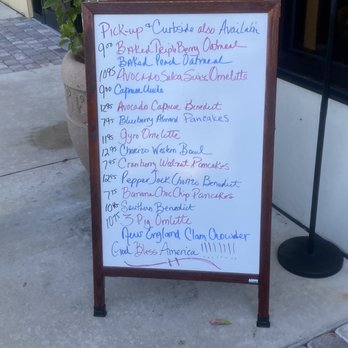 Pick-up & Curbside also Available
9.00 Baked TripleBerry Oatmeal
Baked Peach Oatmeal
10.95 Avocado Salsa Swiss Omelette
9.00 Caprese Quiche
12.95 Avocado Caprese Benedict
7.95 Blueberry Almond Pancakes
11.95 Gyro Omelette
12.95 Chorizo Western Bowl
7.95 Cranberry Walnut Pancakes
12.95 Pepper Jack Chorizo Benedict
7.75 Banana Choc Chip Pancakes
10.95 Southern Benedict
10.75 3 Pig Omlette
New England Clam Chowder
God Bless America !!!!!!!!